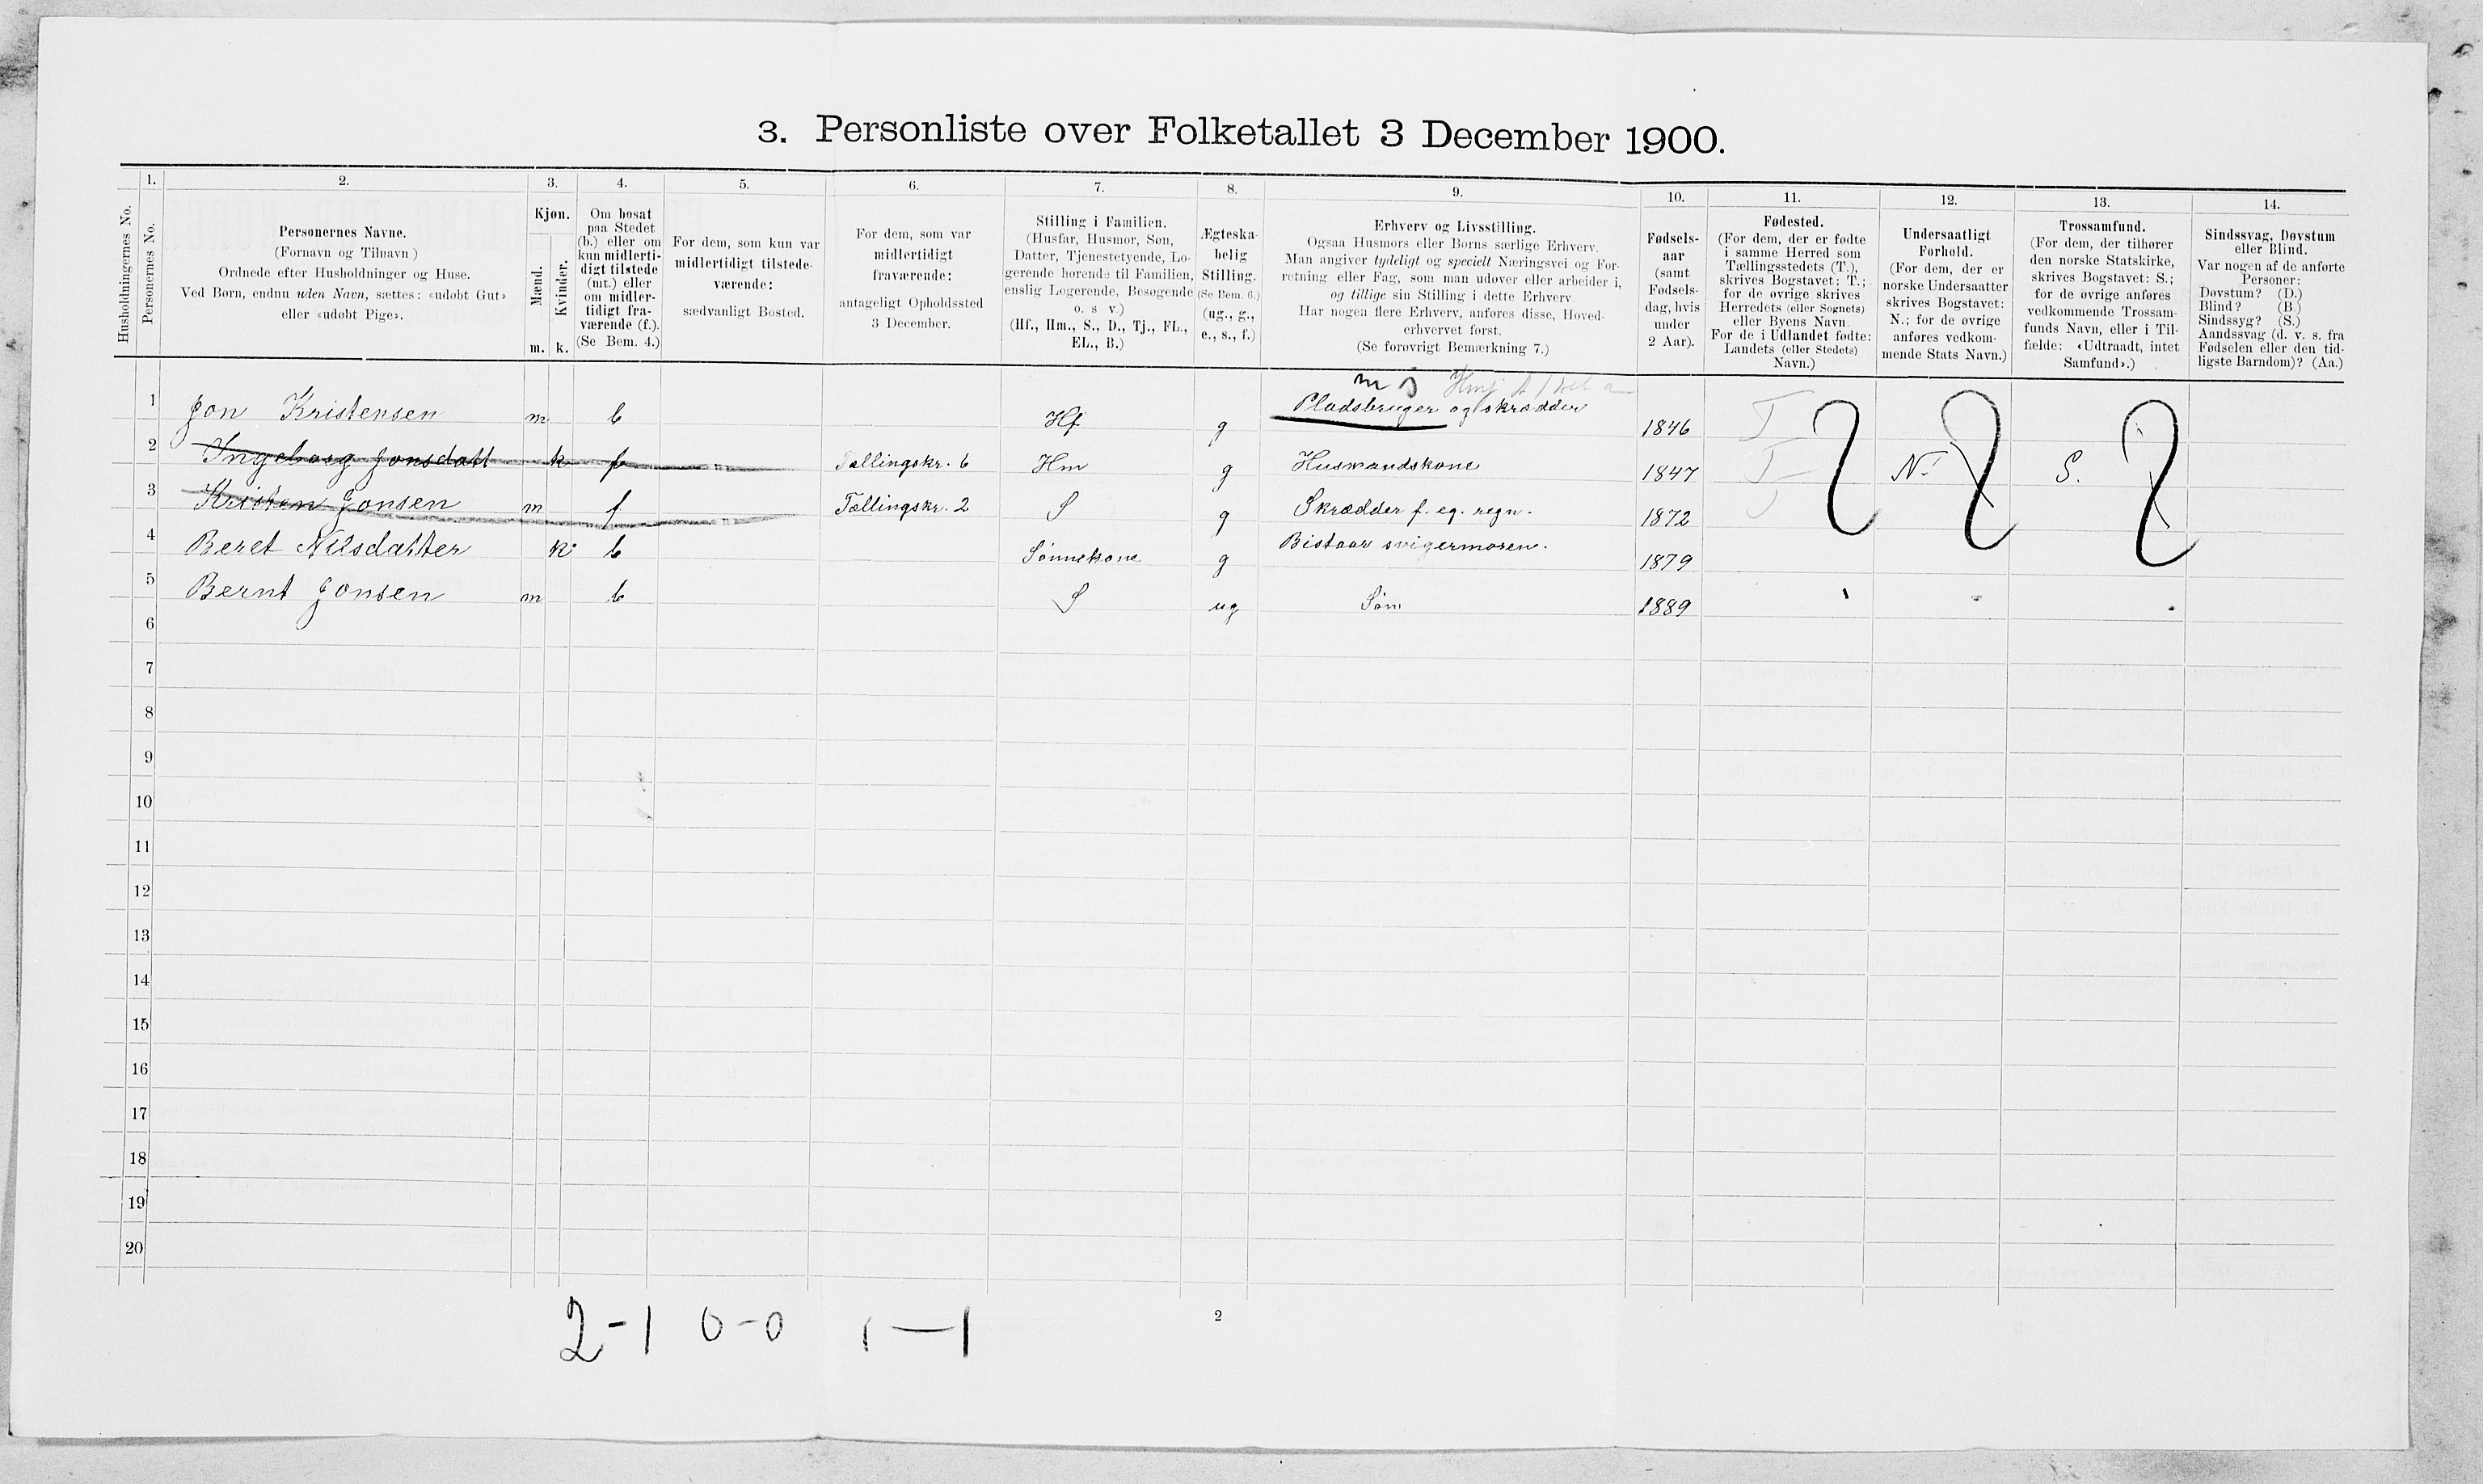 3. Personliste over Folketallet 3 December 1900.
Husholdningernes No.
1.
Personernes No.
2.
Personernes Navne.
(Fornavn og Tilnavn)
Ordnede efter Husholdninger og Huse.
Ved Børn, endnu uden Navn, sættes: «udøbt Gut»
eller «udøbt Pige».
3.
Kjøn.
Mænd.
Kvinder.
m. k.
4.
Om bosat
paa Stedet
(b.) eller om
kun midlerti-
digt tilstede
(mt.) eller
om midler-
tidigt fra-
værende (f.).
(Se Bem. 4.)
5.
For dem, som kun var
midlertidigt tilstede-
værende:
sædvanligt Bosted.
6.
For dem, som var
midlertidigt
fraværende:
antageligt Opholdssted
3 December.
7.
Stilling i Familien.
(Husfar, Husmor, Søn,
Datter, Tjenestetyende, Lo-
gerende hørende til Familien,
enslig Logerende, Besøgende
o. s. v.)
(Hf., Hm., S., D., Tj., FL.,
EL., B.)
8.
Ægteska-
belig
Stilling.
(Se Bem. 6.)
(ug., g.,
e., s., f.)
9.
Erhverv og Livsstilling.
Ogsaa Husmors eller Børns særlige Erhverv.
Man angiver tydeligt og specielt Næringsvei og For-
retning eller Fag, som man udøver eller arbeider i,
og tillige sin Stilling i dette Erhverv.
Har nogen flere Erhverv, anføres disse, Hoved-
erhvervet først.
(Se forøvrigt Bemærkning 7.)
10.
Fødsels-
aar
(samt
Fødsels-
dag, hvis
under
2 Aar).
11.
Fødested.
(For dem, der er fødte
i samme Herred som
Tællingsstedets (T.),
skrives Bogstavet: T.;
for de øvrige skrives
Herredets (eller Sognets)
eller Byens Navn.
For de i Udlandet fødte:
Landets (eller Stedets)
Navn.)
12.
Undersaatligt
Forhold.
(For dem, der er
norske Undersaatter
skrives Bogstavet:
N.; for de øvrige
anføres vedkom-
mende Stats Navn.)
13.
Trossamfund.
(For dem, der tilhører
den norske Statskirke,
skrives Bogstavet: S.;
for de øvrige anføres
vedkommende Trossam-
funds Navn, eller i Til-
fælde: «Udtraadt, intet
Samfund».)
14.
Sindssvag, Døvstum
eller Blind.
Var nogen af de anførte
Personer:
Døvstum? (D.)
Blind? (B.)
Sindssyg? (S.)
Aandssvag (d. v. s. fra
Fødselen eller den tid-
ligste Barndom)? (Aa.)
1 Jon Kristensen m b Hf g Pladsbruger og skrædder 1846 T
2 Ingeborg Jonsdatt k f Tællingskr. 6 Hm g Husmandskone 1847 T N. S.
3 Kristen Jonsen m f Tællingskr. 2 S g Skrædder f. eg. regn. 1872
4 Beret Nilsdatter k b Sønnekone g Bistaar svigermoren. 1879
5 Bernt Jonsen m b S ug Søn 1889
6
7
8
9
10
11
12
13
14
15
16
17
18
19
20
2-1 0-0 1-1
2